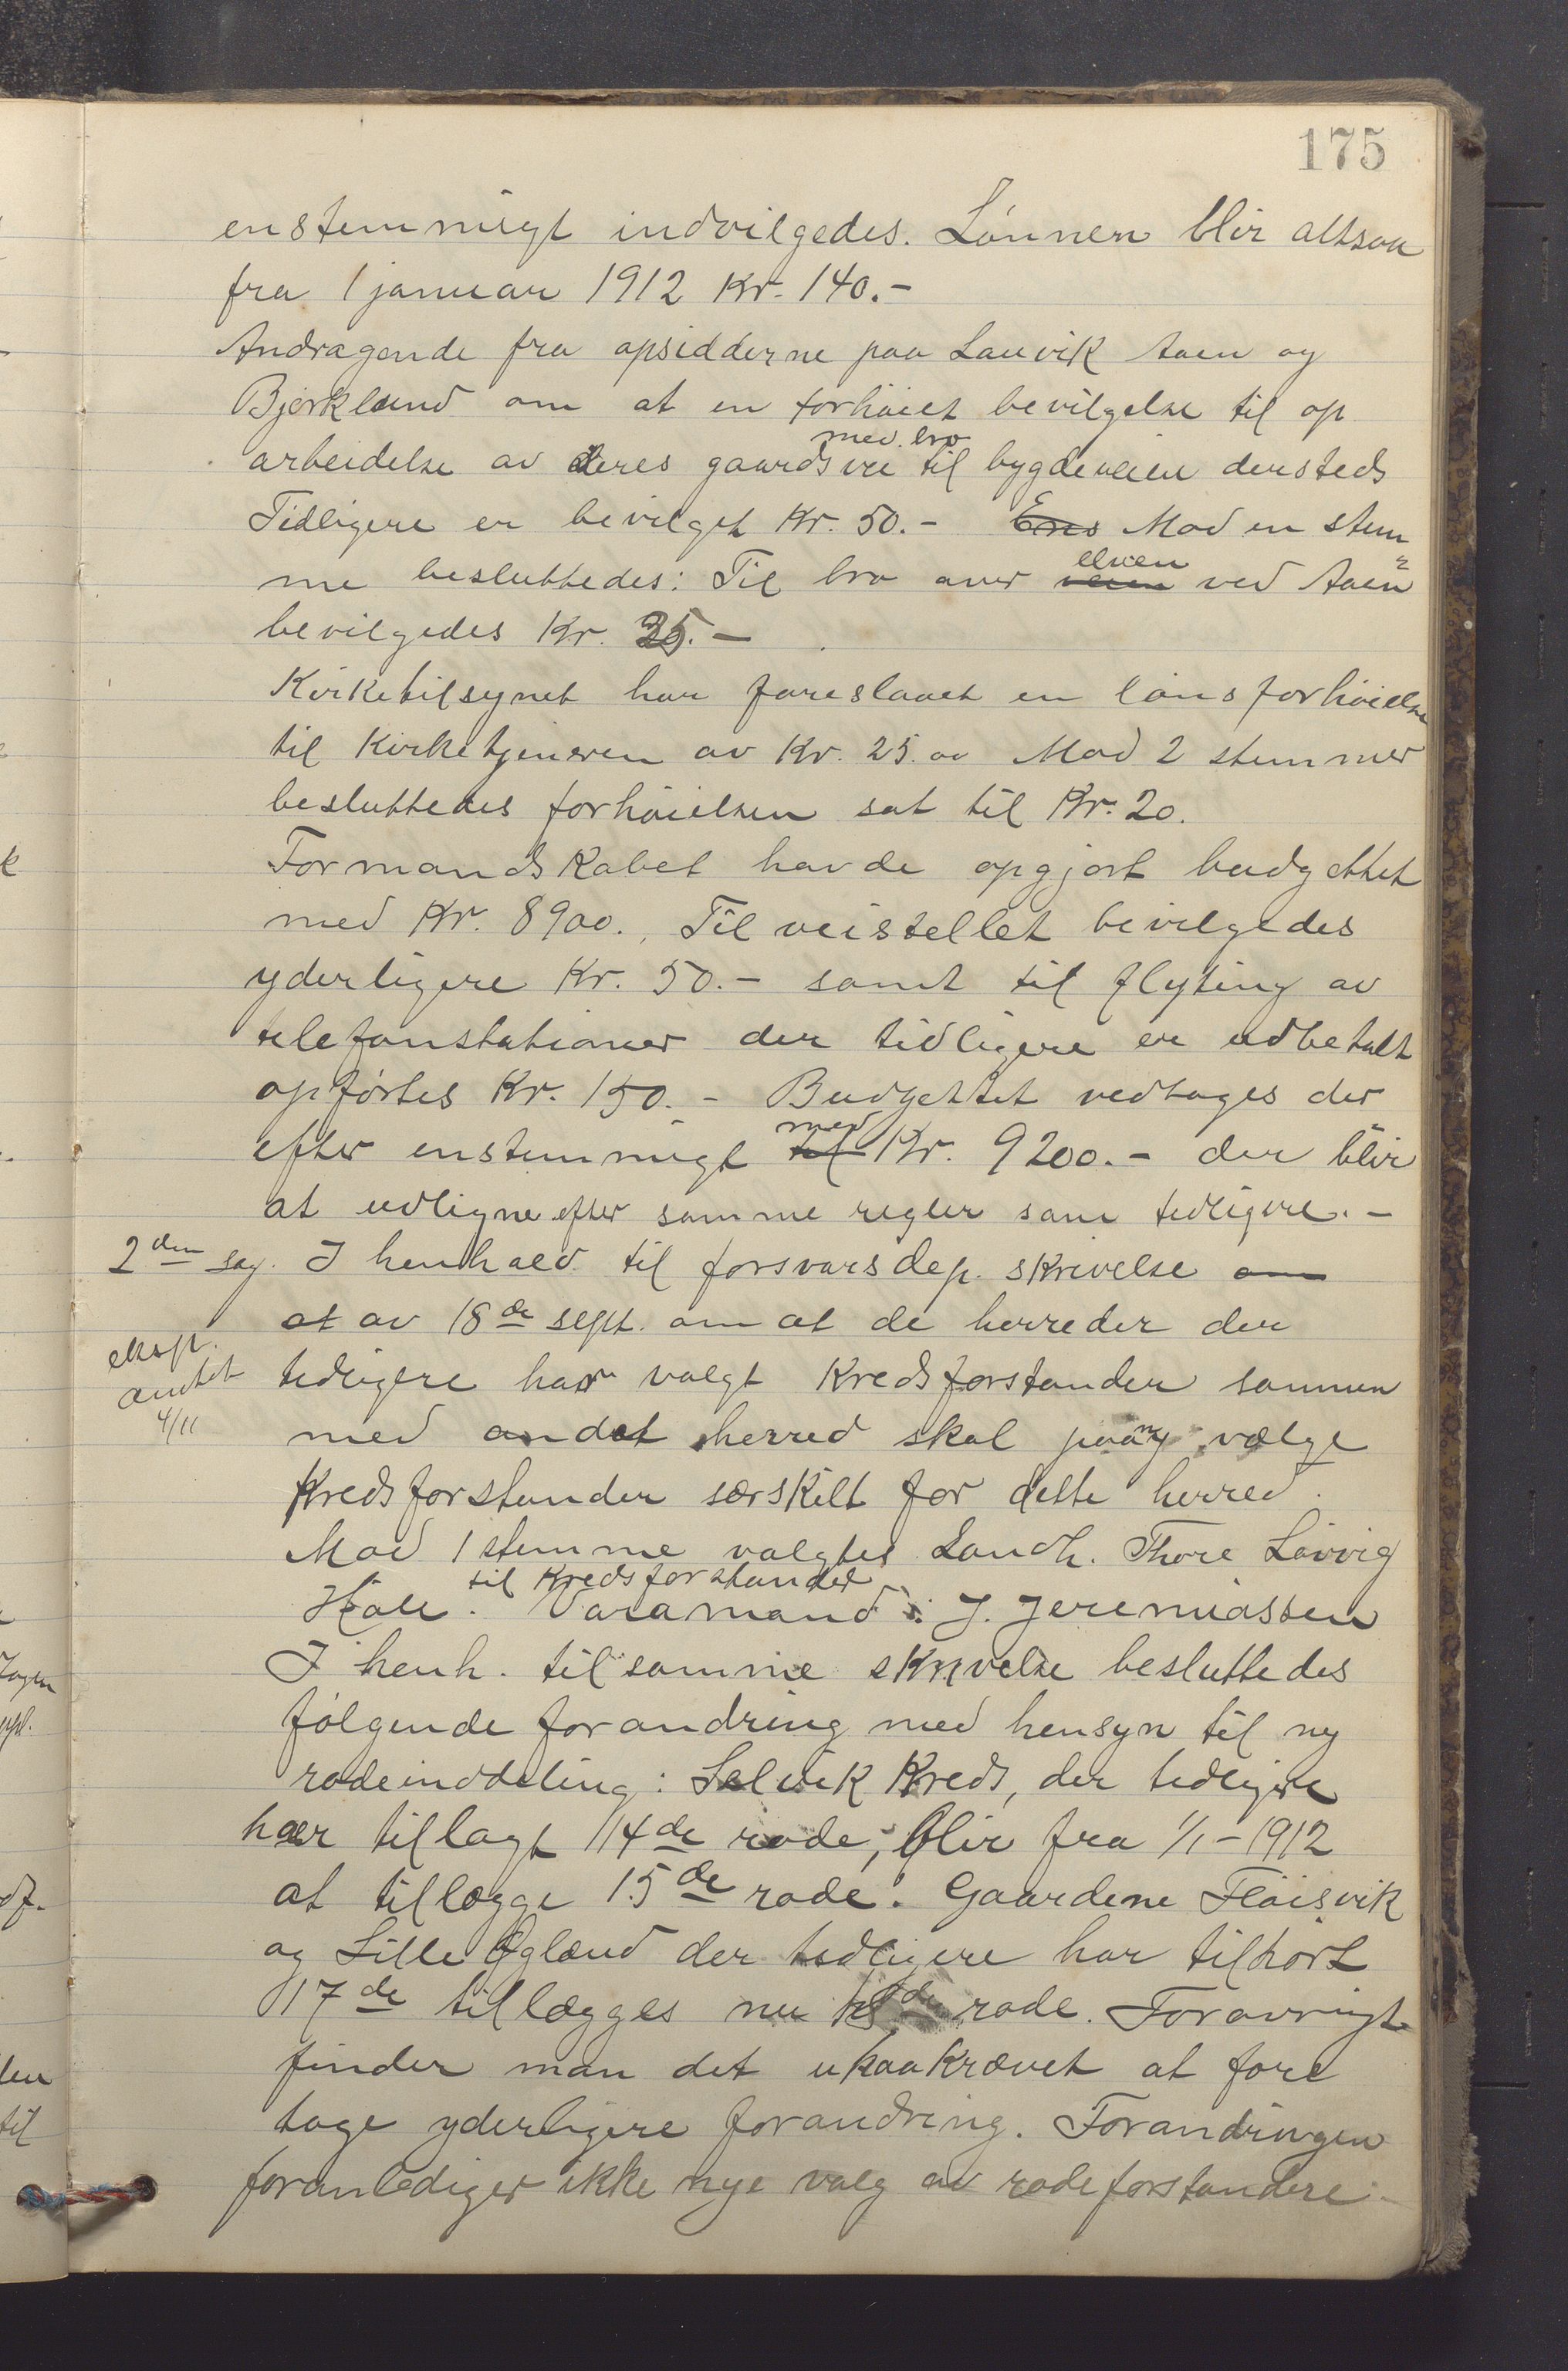 175
enstemmigt indvilgedes. Lønnen blir altsaa
fra 1 januar 1912 Kr. 140.-
Andragende fra opsidderne paa Lauvik Aaen og
Bjørklund om at en forhøiet bevilgelse til op
med bro
arbeidelse av deres gaardsvei til bygdeveien densteds
Tidligere er bevilget Kr. 50.- Ens Mod en stem
elven
me besluttedes: Til bro over veien ved Aaen
bevilgedes Kr. 35.-
Kirketilsynet har foreslaaet en lønsforhøielse
til Kirketjeneren av Kr. 25.oo Mod 2 stemmer
besluttedes forhøielsen sat til Kr. 20.
Formandskabet havde opgjort budgettet
med Kr. 8900. Til veistellet bevilgedes
yderligere Kr. 50.- samt til flyting av
telefonstationer der tidligere er udbetalt
opførtes Kr. 150.- Budgettet vedtages der
med
efter enstemmigt til Kr. 9200.- der blir
at udligne efter samme regler som tidligere.-
2den sag. I henhold til forsvarsdep. skrivelse om
at av 18de sept. om at de herreder der
ekspt.
amtet
4/11
tidligere har valgt Kredsforstander sammen
med andet herred skal paany vælge
Kredsforstander særskilt for dette herred.
Mod 1 stemme valgtes Landh. Thore Løvvig
til Kredsforstander
Hole. Varamand: J. Jeremiassen
I henh. til samme skrivelse besluttedes
følgende forandring med hensyn til ny
rodeinddeling: Selvik Kreds, der tidligere
har tillagt 14de rode, blir fra 1/1-1912
at tillægge 15de rode. Gaardene Fløisvik
og Lille Øglænd der tidligere har tilhørt
17de tillægges nu de rode. Forøvrigt
finder man det upaakrævet at fore
tage yderligere forandring. Forandringen
foranlediger ikke nye valg av rodeforstandere.-